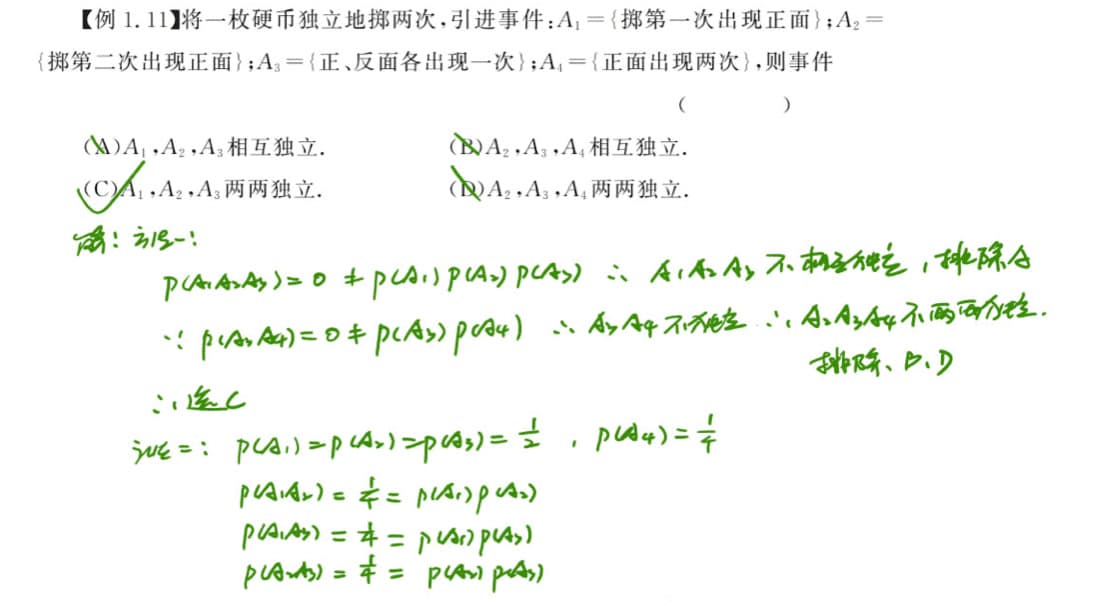 【例 1.11】将一枚硬币独立地掷两次,引进事件:A₁={掷第一次出现正面};A₂=
{掷第二次出现正面};A₃={正、反面各出现一次};A₄={正面出现两次},则事件
( )
(A)A₁,A₂,A₃相互独立. (B)A₂,A₃,A₄相互独立.
(C)A₁,A₂,A₃两两独立. (D)A₂,A₃,A₄两两独立.
解:方法一:
P(A₁A₂A₃)=0≠P(A₁)P(A₂)P(A₃) ∴ A₁A₂A₃不相互独立,排除A
∵ P(A₃A₄)=0≠P(A₃)P(A₄) ∴ A₃A₄不独立 ∴ A₂A₃A₄不两两独立.
排除、B、D
∴选C
法二: P(A₁)=P(A₂)=P(A₃)=1/2 , P(A₄)=1/4
P(A₁A₂)=1/4=P(A₁)P(A₂)
P(A₁A₃)=1/4=P(A₁)P(A₃)
P(A₂A₃)=1/4=P(A₂)P(A₃)